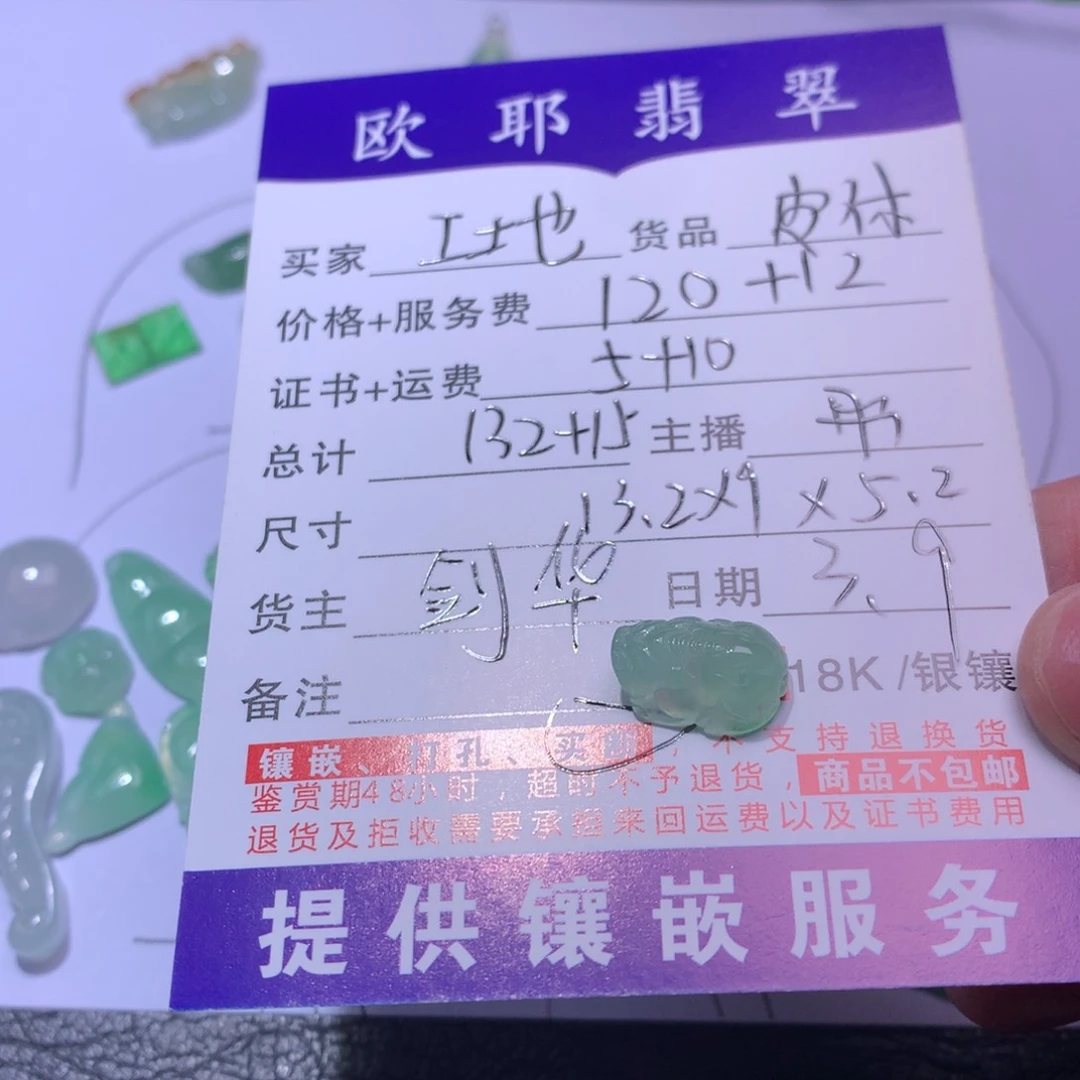 欧耶翡翠
买家 工土地 货品 皮休
价格+服务费 120+12
证书+运费 5+10
总计 132+15 主播
尺寸 13.2×9×5.2
货主 剑华 日期 3.9
备注 18K/银镶
镶嵌、打孔、买断，不支持退换货
鉴赏期48小时，超时不予退货，商品不包邮
退货及拒收需要承担来回运费以及证书费用
提供镶嵌服务